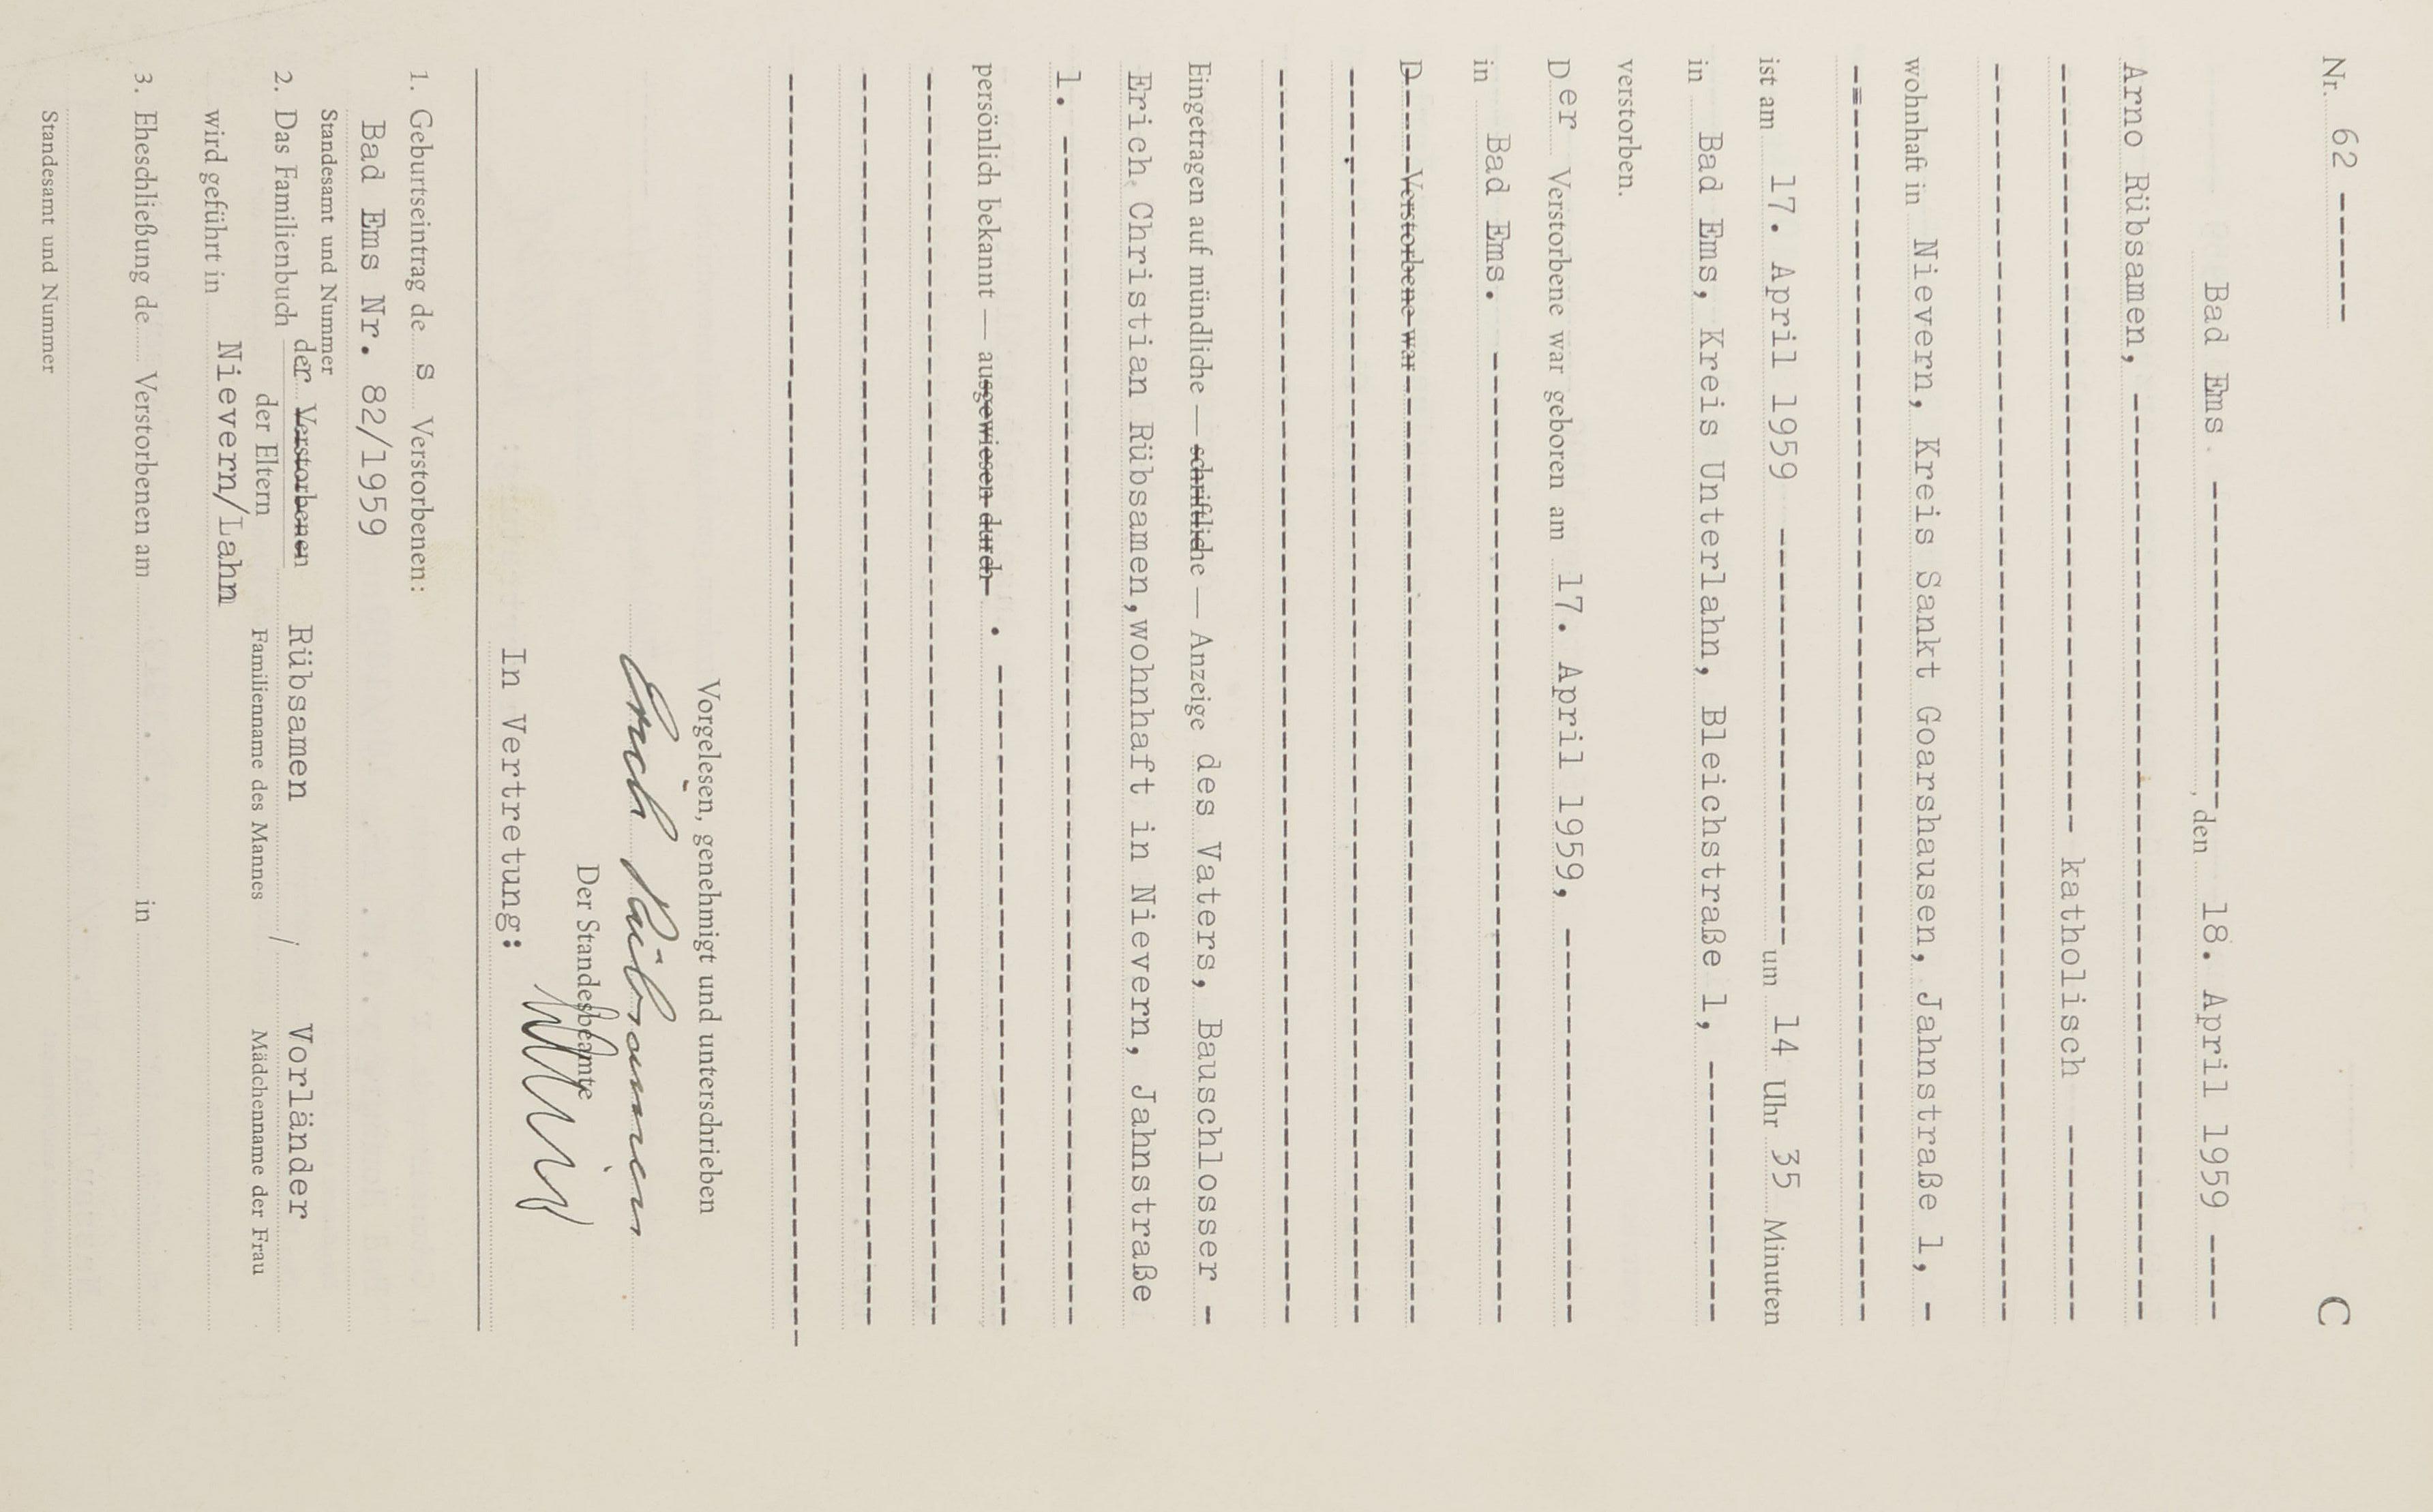 Nr. 62 ------ C
Bad Ems --------------------, den 18. April 1959 ----
Arno Rübsamen, --------------------
-------------------- katholisch --------
--------------------
wohnhaft in Nievern, Kreis Sankt Goarshausen, Jahnstraße 1, -
--------------------
ist am 17. April 1959 -------------------- um 14 Uhr 35 Minuten
in Bad Ems, Kreis Unterlahn, Bleichstraße 1, ----------
verstorben.
Der Verstorbene war geboren am 17. April 1959, ---------------
in Bad Ems. --------------------
D----Verstorbene war--------------------
--------------------
--------------------
Eingetragen auf mündliche — schriftliche — Anzeige des Vaters, Bauschlosser -
Erich Christian Rübsamen,wohnhaft in Nievern, Jahnstraße
1. --------------------
persönlich bekannt — ausgewiesen durch . --------------------
--------------------
--------------------
--------------------
Vorgelesen, genehmigt und unterschrieben
Erich Rübsamen
Der Standesbeamte
In Vertretung:
1. Geburtseintrag de s Verstorbenen:
Bad Ems Nr. 82/1959
Standesamt und Nummer
2. Das Familienbuch der Verstorbenen Rübsamen / Vorländer
der Eltern Familienname des Mannes Mädchenname der Frau
wird geführt in Nievern/Lahn
3. Eheschließung de Verstorbenen am in
Standesamt und Nummer